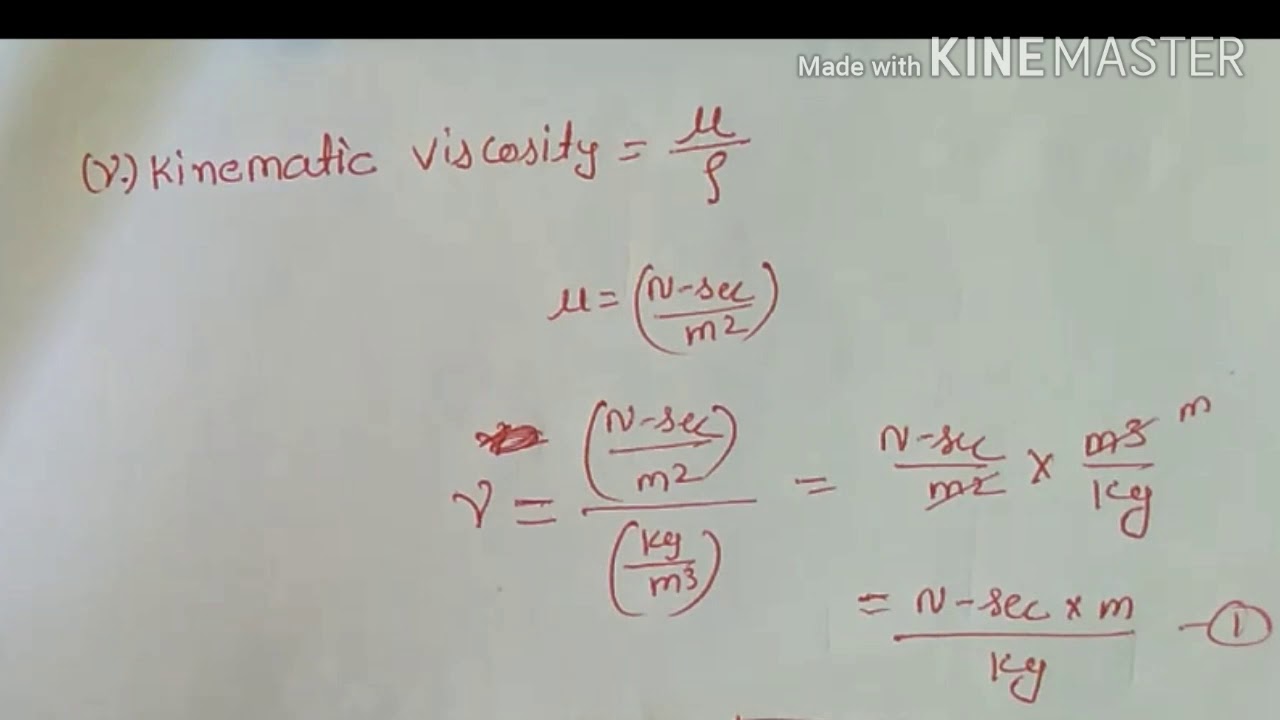 Made with KINEMASTER
(ν.) Kinematic viscosity = μ/ρ
μ = (N-sec/m2)
ν = (N-sec/m2)/(kg/m3) = N-sec/m2 × m3/Kg m
= N-sec × m/Kg -①